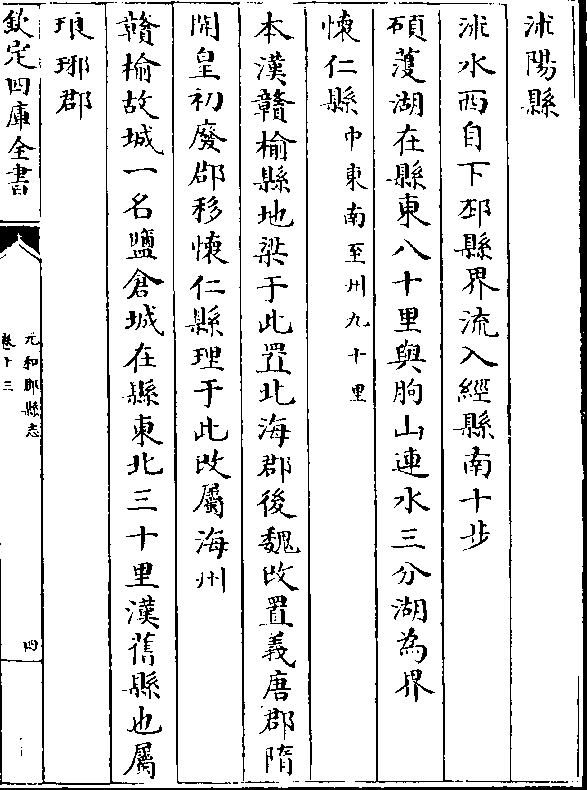 沭陽縣
沭水西自下邳縣界流入經縣南十步
碩䕶湖在縣東八十里與朐山連水三分湖為界
懷仁縣中東南至州九十里
本漢贛榆縣地梁于此置北海郡後魏改置義唐郡隋
開皇初廢郡移懷仁縣理于此改屬海州
贛榆故城一名鹽倉城在縣東北三十里漢舊縣也屬
琅琊郡
欽定四庫全書
元和郡縣志
卷十三
四